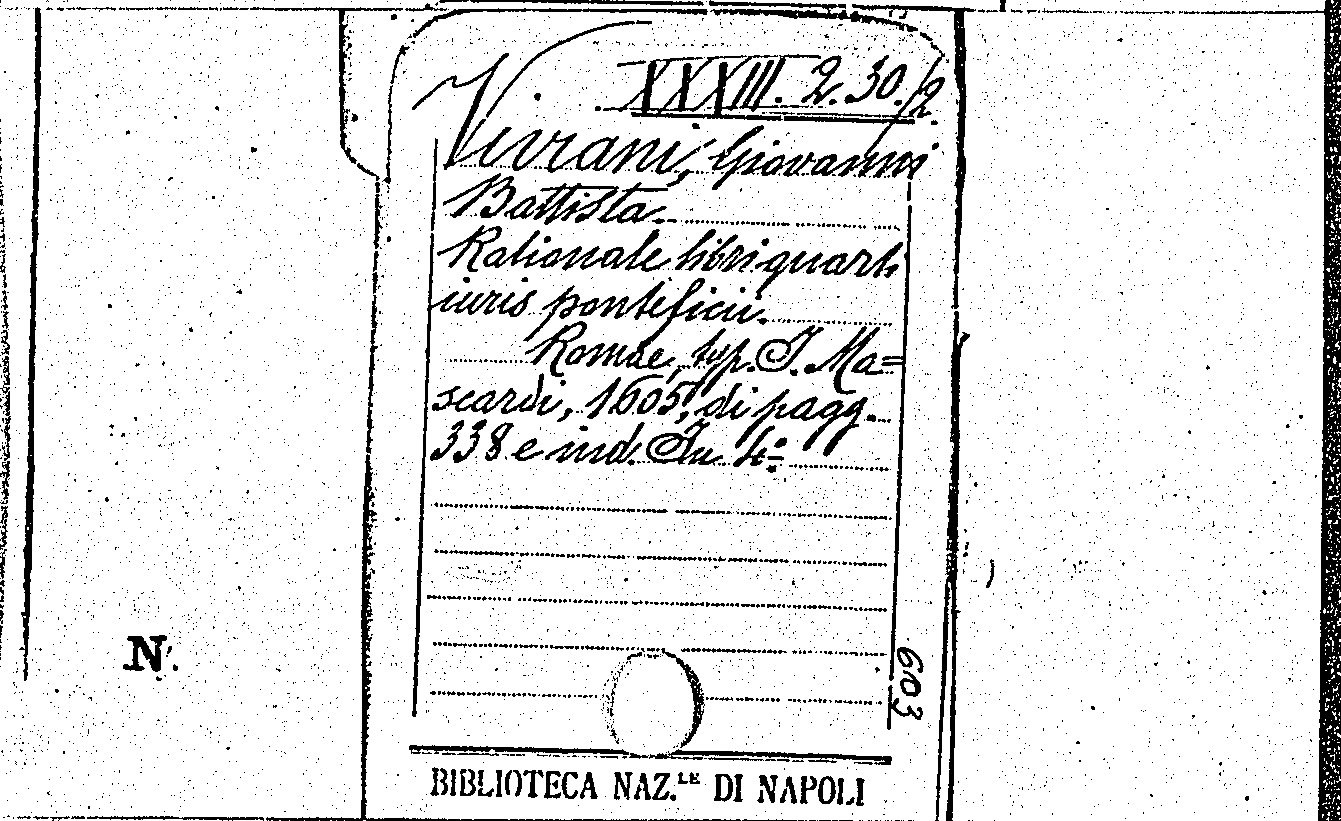 XXXIII. 2. 30./2.
Vivrani, Giovanni
Battista.
Rationale libri quarti
iuris pontificii.
Romae, typ. J. Ma=
scardi, 1605, di pagg.
338 e ind. In 4.º
603
N.
BIBLIOTECA NAZ.LE DI NAPOLI